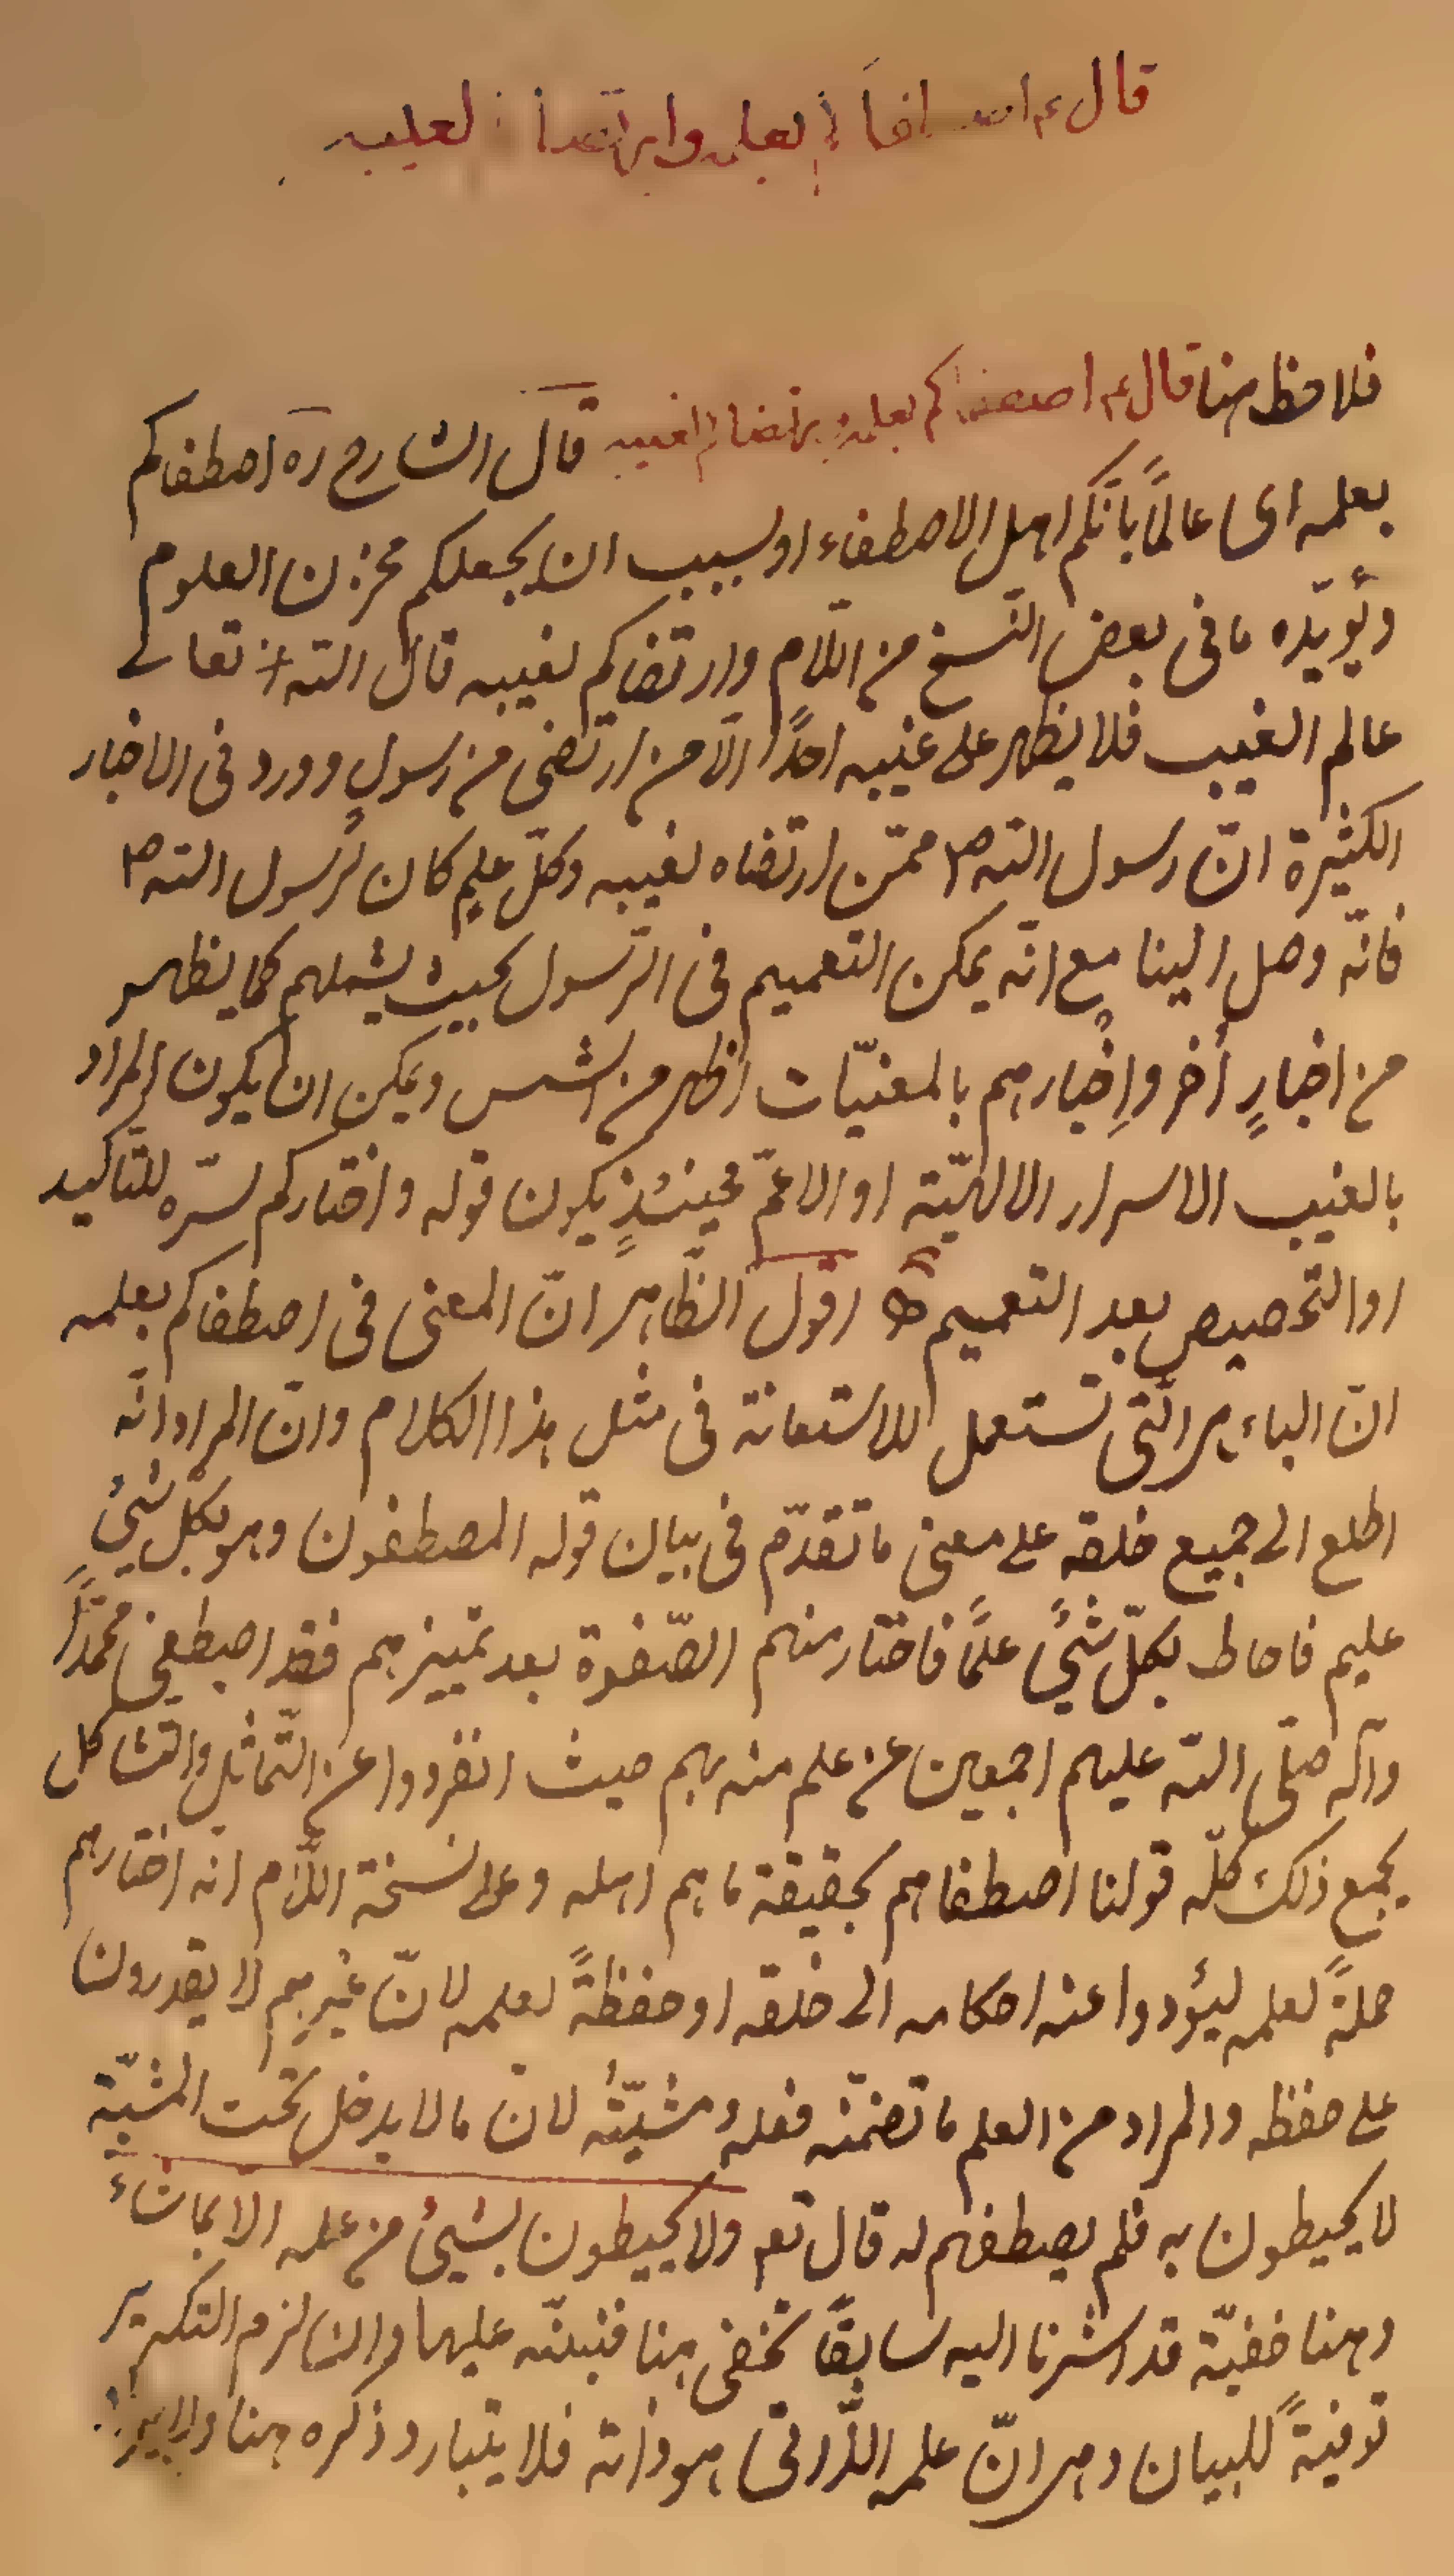 قال ع اصطفاكم بعلمه وارتضاكم لغيبه
فلاحظ هنا قال ع اصطفاكم بعلمه وارتضاكم لغيبه قال الشارح ره اصطفاكم
بعلمه اى عالمًا بانّكم اهل الاصطفاء او بسبب ان يجعلكم مخزن العلوم
ويؤيّده ما فى بعض النّسخ من اللّام وارتضاكم لغيبه قال اللّه تعالى
عالم الغيب فلا يظهر على غيبه احدًا الّا من ارتضى من رسولٍ وورد فى الاخبار
الكثيرة انّ رسول اللّه ص ممّن ارتضاه لغيبه وكلّ علمٍ كان لرسول اللّه ص
فانّه وصل الينا مع انّه يمكن التعميم فى الرّسول بحيث يشملهم كما يظهر
من اخبارٍ أخر وإخبارهم بالمغيّبات اظهر من الشمس ويمكن ان يكون المراد
بالغيب الاسرار الالهيّة او الاعمّ فحينئذٍ يكون قوله واختاركم لسرّه للتّاكيد
او التخصيص بعد التعميم اقول الظّاهر انّ المعنى فى اصطفاكم بعلمه
انّ الباء هى الّتى تستعمل للاستعانة فى مثل هذا الكلام وانّ المراد انّه
اطلع الى جميع خلقه على معنى ما تقدّم فى بيان قوله المصطفون وهو بكلّ شئ
عليم فاحاط بكلّ شئٍ علمًا فاختار منهم الصّفوة بعد تمييزهم فقد اصطفى محمّدًا
وآله صلّى اللّه عليهم اجمعين عن علم منه بهم حيث انفردوا عن التّماثل والتشاكل
يجمع ذلك كلّه قولنا اصطفاهم بحقيقة ما هم اهله وعلى نسخة اللّام انّه اختارهم
حملةً لعلمه ليؤدوا عنه احكامه الى خلقه او حفظةً لعلمه لانّ غيرهم لا يقدرون
على حفظه والمراد من العلم ما تضمّنه فعله ومشيّته لان ما لا يدخل تحت المشيّة
لا يحيطون به فلم يصطفهم له قال تعه ولا يحيطون بشئ من علمه الا بما شاء
وهنا خفيّة قد اشرنا اليه سابقًا تخفى هنا فنبّه عليها وان لزم التكرير
توفيةً للبيان وهى انّ علمه الذّاتى هو ذاته فلا يتبادر ذكره هنا